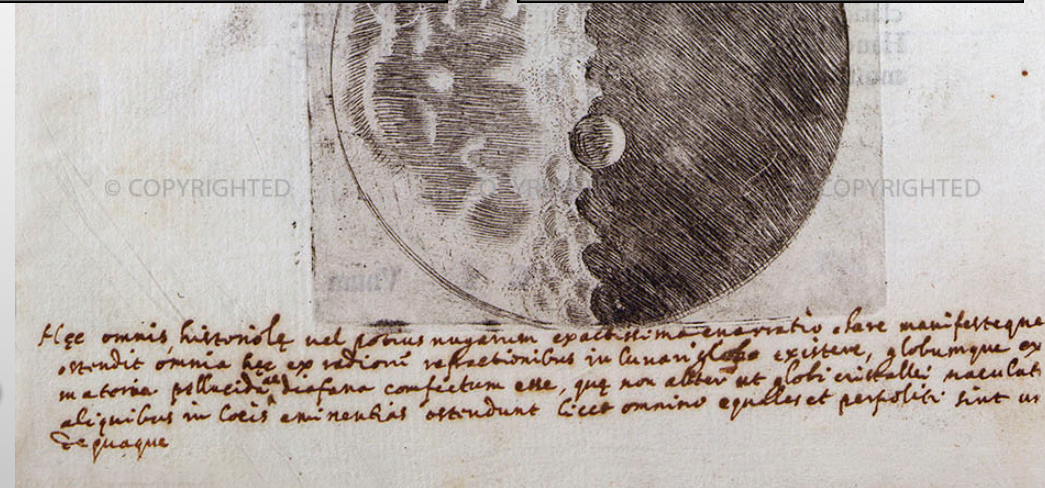 © COPYRIGHTED
COPYRIGHTED
Vnum
Hęc omnis historiolę vel potius nugarum exactissima enarratio clare manifesteque
ostendit omnia hęc ex radiorū refractionibus in lunari globo existere, globumque ex
materia pellucida ac diafana confectum esse, quę non aliter ut globi cristallei maculat
aliquibus in locis eminentias ostendunt licet omnino equalles et perpoliti sint un
dequaque